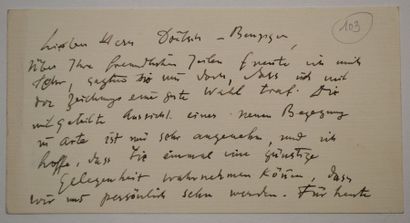 103
Lieber Herr Deutsch - Benziger,
über Ihre freundlichen Zeilen freute ich mich
sehr, sagten sie mir doch, dass ich mit
der Zeichnung eine gute Wahl traf. Die
mitgeteilte Aussicht einer neuen Begegnung
in arte ist mir sehr angenehm, und ich
hoffe, dass Sie einmal eine günstige
Gelegenheit wahrnehmen können, dass
wir uns persönlich sehn werden. Für heute